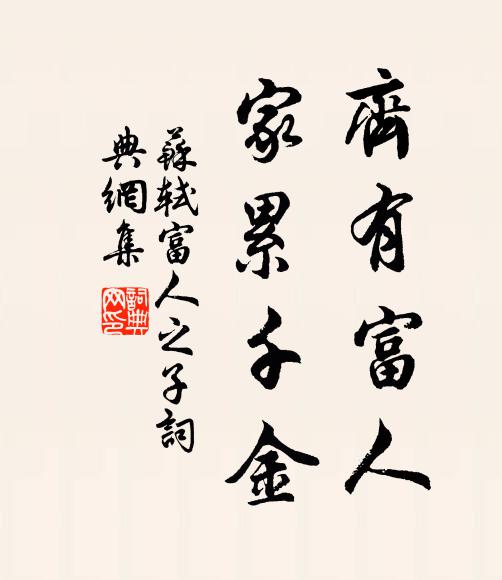 齊有富人
家累千金
蘇軾富人之子詞
典網集
詞典
网印